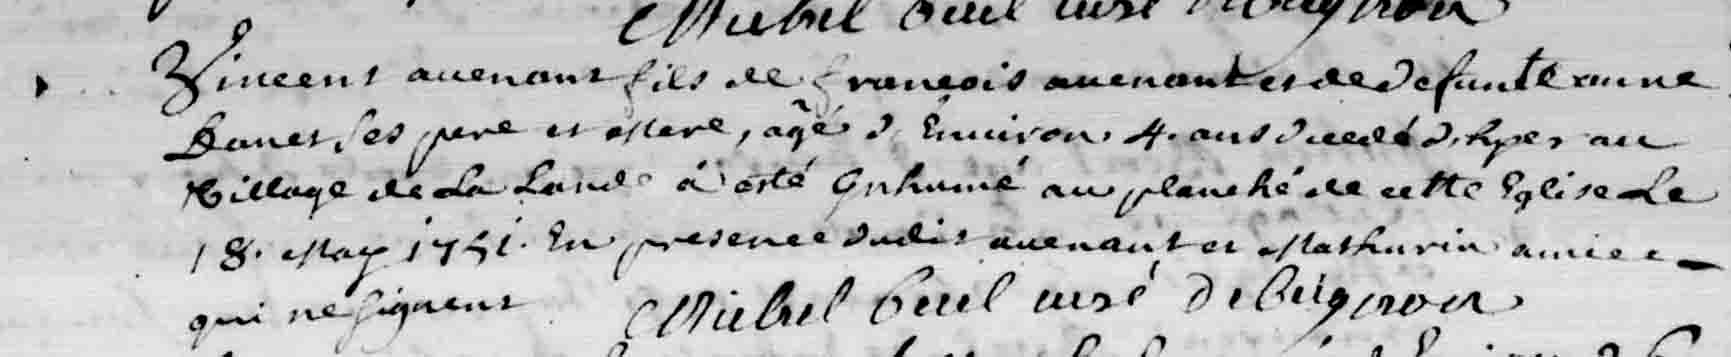 Michel Bail curé d'Augnon
Vincent auenant fils de francois auenant et de defunte anne
Danet ses pere et Mere, agé d'Enuiron 4. ans decedé d'hyer au
Village de La Lande á esté Inhumé au planché de cette Eglise Le
18. May 1751. En presence dudit auenant et Mathurin amice
qui ne signent Michel curé